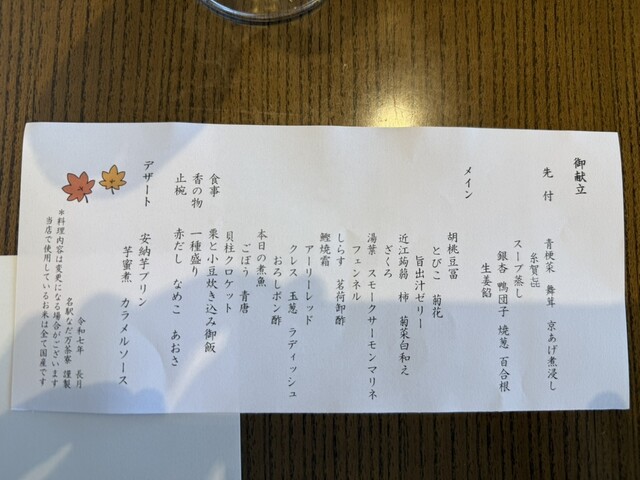 御献立
先付
青梗菜 舞茸 京あげ煮浸し
糸賀㐂
スープ蒸し
銀杏 鴨団子 焼葱 百合根
生姜餡
メイン
胡桃豆冨
とびこ 菊花
旨出汁ゼリー
近江蒟蒻 柿 菊菜白和え
ざくろ
湯葉 スモークサーモンマリネ
フェンネル
しらす 茗荷卸酢
鰹焼霜
アーリーレッド
クレス 玉葱 ラディッシュ
おろしポン酢
本日の煮魚
ごぼう 青唐
貝柱クロケット
食事 栗と小豆炊き込み御飯
香の物 一種盛り
止椀 赤だし なめこ あおさ
デザート
安納芋プリン
芋蜜煮 カラメルソース
令和七年 長月
名駅なだ万茶寮 謹製
*料理内容は変更になる場合がございます
当店で使用しているお米は全て国産です